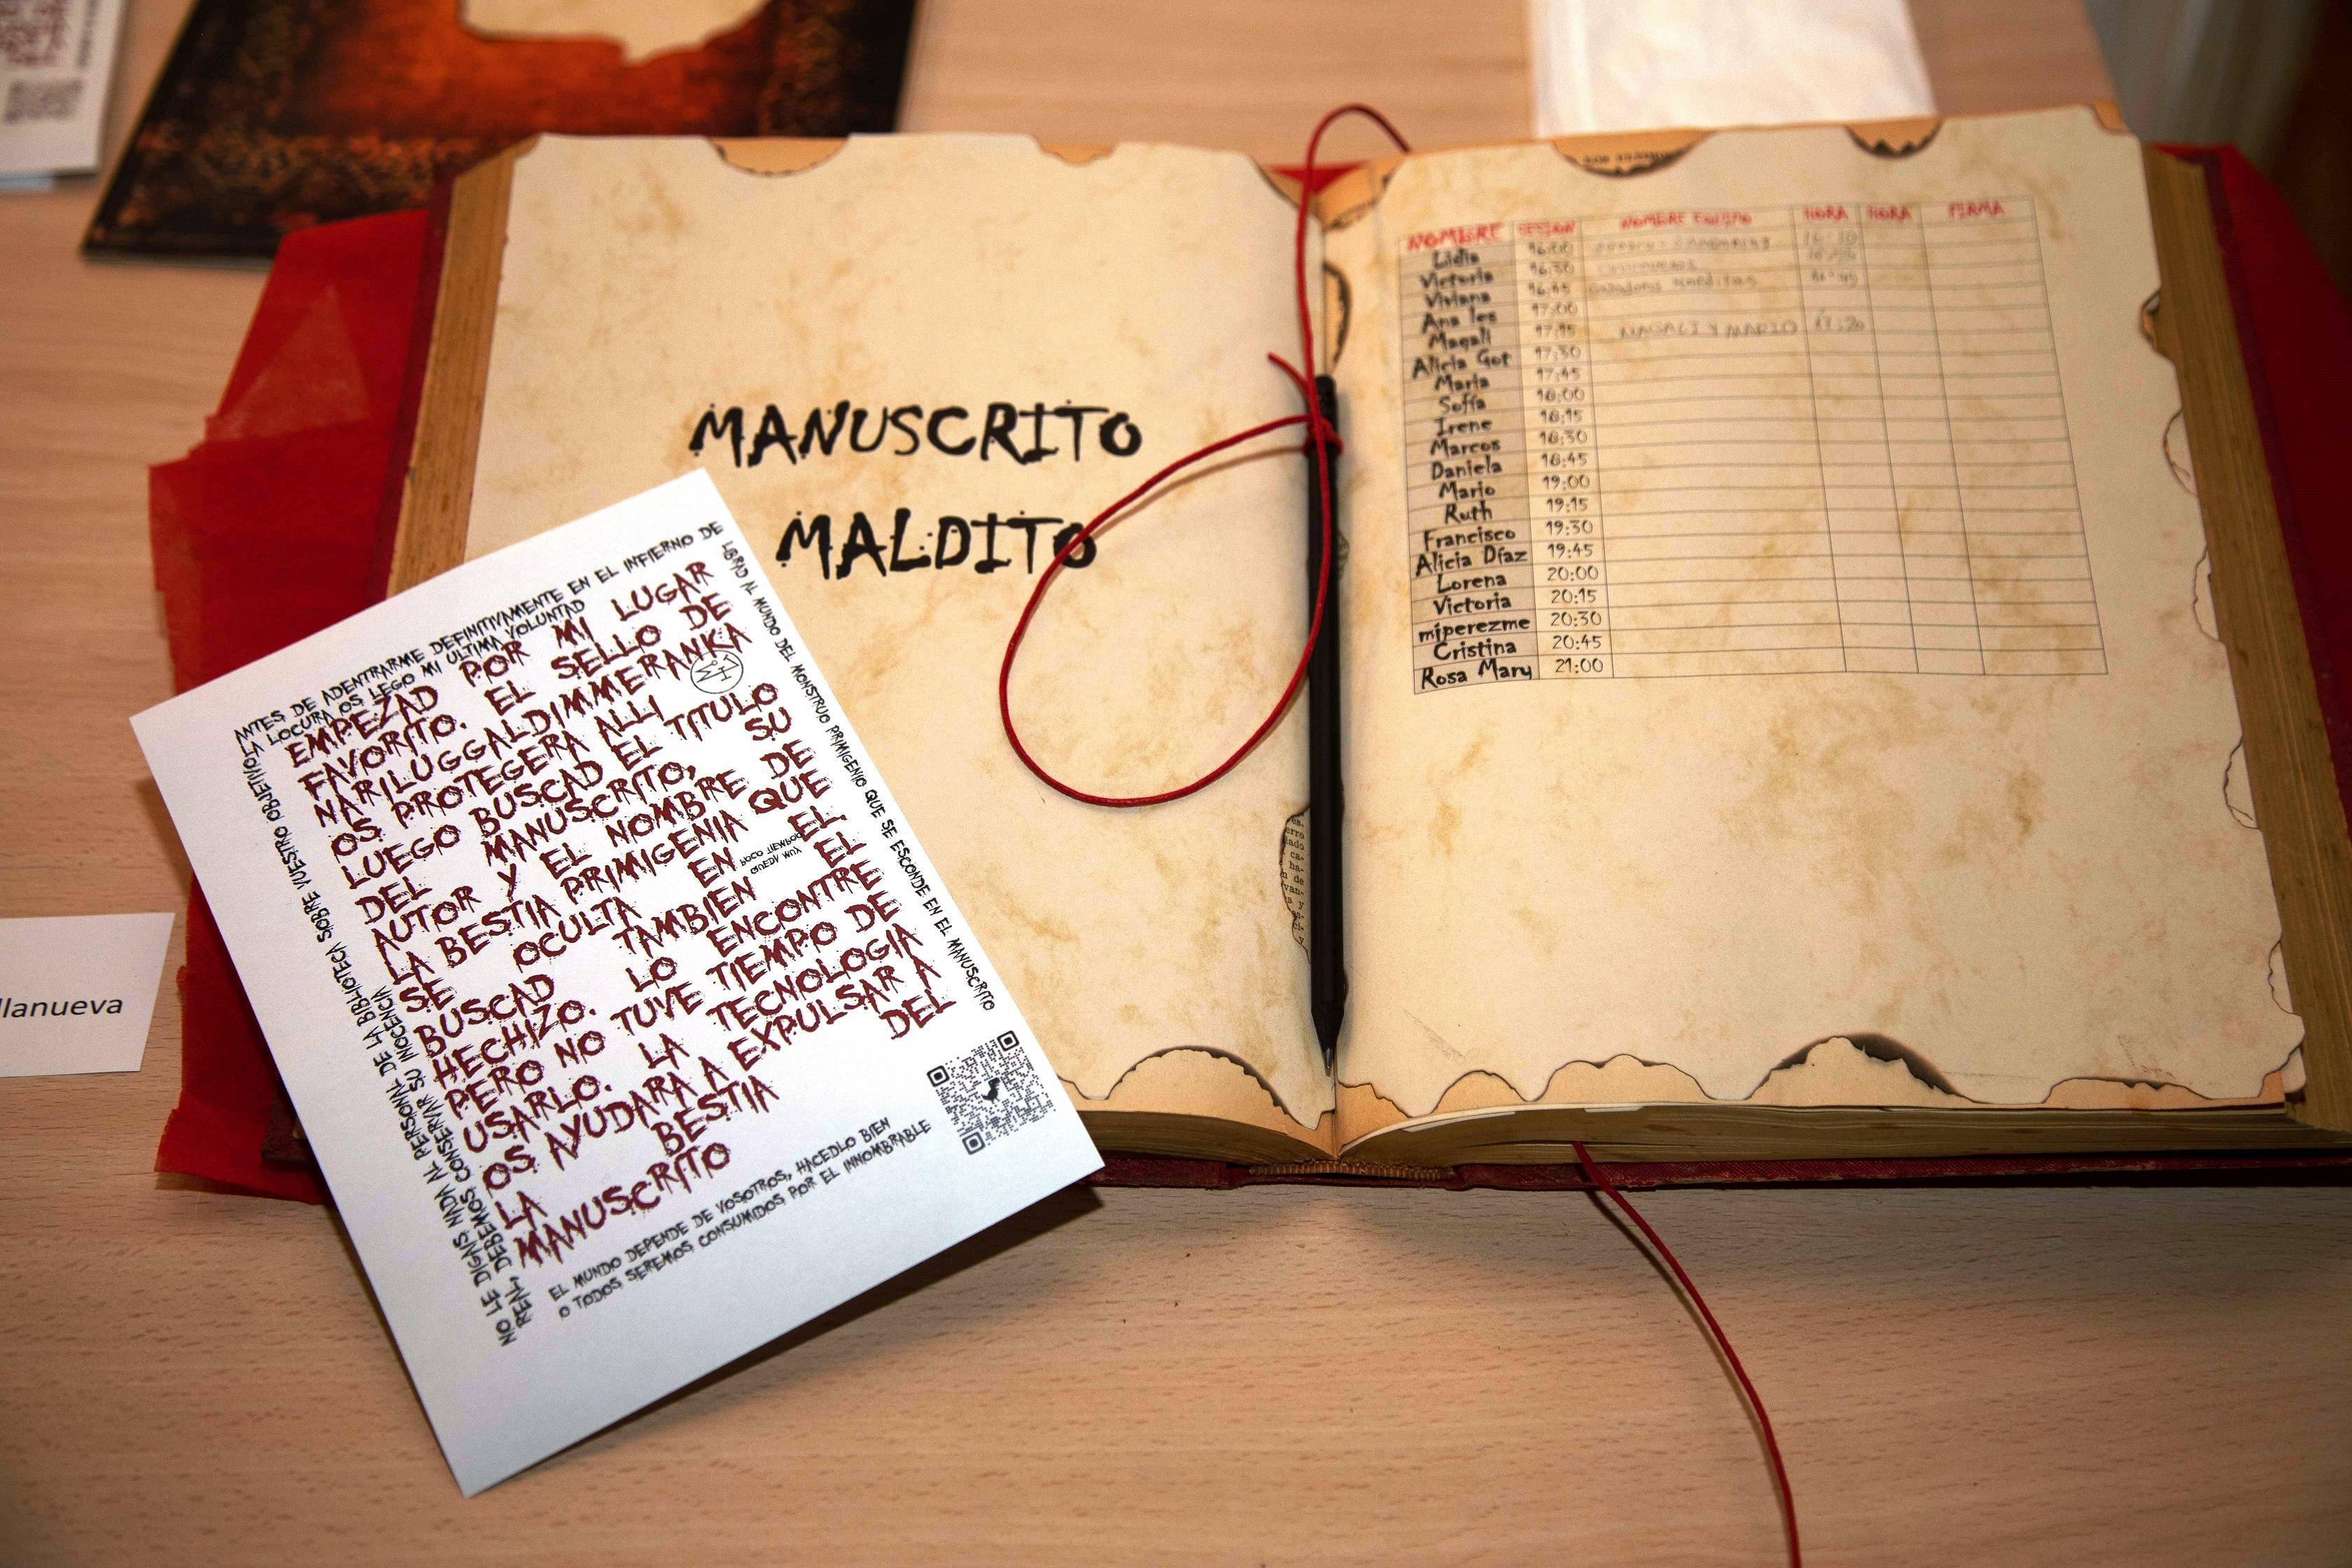 MANUSCRITO
MALDITO
ANTES DE ADENTRARME DEFINITIVAMENTE EN EL INFIERNO DE
LA LOCURA OS LEGO MI ULTIMA VOLUNTAD
EMPEZAD POR MI LUGAR
FAVORITO. EL SELLO DE
NARILUGGALDIMMERANKA
OS PROTEGERA ALLI
LUEGO BUSCAD EL TITULO
DEL MANUSCRITO, SU
AUTOR Y EL NOMBRE DE
LA BESTIA PRIMIGENIA QUE
SE OCULTA EN EL.
BUSCAD TAMBIEN EL
HECHIZO. LO ENCONTRE
PERO NO TUVE TIEMPO DE
USARLO. LA TECNOLOGIA
OS AYUDARA A EXPULSAR A
LA BESTIA DEL
MANUSCRITO
QUEDA MUY
POCO TIEMPO
LIBRAD AL MUNDO DEL MONSTRUO PRIMIGENIO QUE SE ESCONDE EN EL MANUSCRITO
EL MUNDO DEPENDE DE VOSOTROS, HACEDLO BIEN
O TODOS SEREMOS CONSUMIDOS POR EL INNOMBRABLE
NO LE DIGAIS NADA AL PERSONAL DE LA BIBLIOTECA SOBRE VUESTRO OBJETIVO
REAL, DEBEMOS CONSERVAR SU INOCENCIA
llanueva
NOMBRE SESION NOMBRE EQUIPO HORA HORA FIRMA
Lidia 16:00
Victoria 16:30
Viviana 16:45 16:45
Ana Ies 17:00
Magali 17:15 MAGALI Y MARIO 17:20
Alicia Got 17:30
María 17:45
Sofía 18:00
Irene 18:15
Marcos 18:30
Daniela 18:45
Mario 19:00
Ruth 19:15
Francisco 19:30
Alicia Díaz 19:45
Lorena 20:00
Victoria 20:15
miperezme 20:30
Cristina 20:45
Rosa Mary 21:00